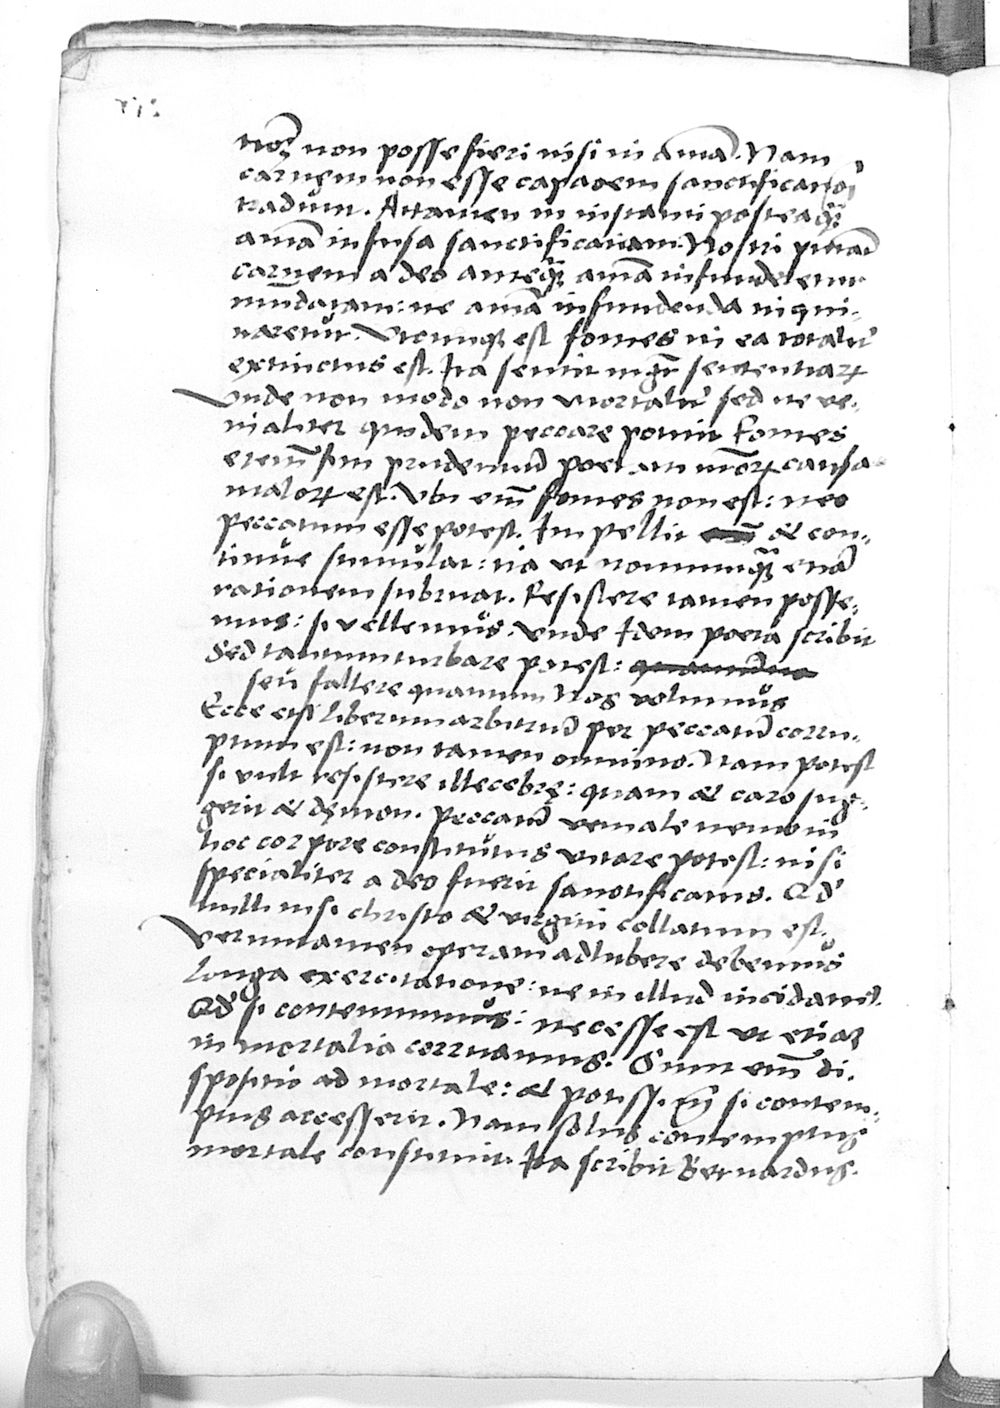 nõ non posse fieri nisi in anima᷑. Nam
carnem non esse capacem sanctificatiõi
tradunt. Attamen in instanti posteaq̃
anima᷑ infusa sanctificatam. Nostri putãt
carnem a deo anteq̃ aniã infunderetur
mundatam: ne aniã infundenda inqui-
naretur. Vtcunq; est fomes in ea totalit̃
extinctus est. Ita sentit mgr̃ sententiarꝝ
Vnde non modo non mortalit̃ sed ne ve-
nialiter quidem peccare potuit Fomes
etenĩ sim prudentiũ poetam ñrorꝝ causa
malorꝝ est. Vbi enĩ fomes non est: nec
peccatum esse potest. Impellit & con-
tinue stimulat: ita ut nonnunq̃ etiã
rationem subruat. Resistere tamen posse-
mus: si vellemus. Vnde Idem poeta scribit
Sed tantum turbare potest:
seu fallere quantum Nos volumus
Ecce etsi liberum arbitriũ per peccatũ corru-
ptum est: non tamen omnino. Nam potest
si vult resistere illecebrę: quam & caro sug-
gerit & dęmon. Peccatũ veniale nemo in
hoc corpore constitutus vitare potest: nisi
specialiter a deo fuerit sanctificatus. Qd̃
nulli nisi christo & virgini collatum est.
Veruntamen operam adhibere debemus
longa exercitatione: ne in illud incidamꝰ.
Qd̃ si contemnimus: necesse est ut etiam
in mortalia corruamus. Sunt enĩ di-
spositio ad mortale: & potissimũ si contem-
ptus accesserit. Nam solus contemptus
mortale constituit. Ita scribit Bernardus.